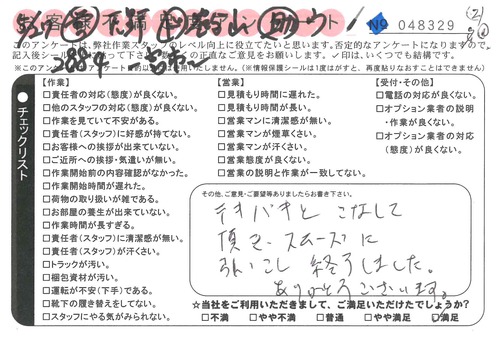 お客様不満足度アンケート
№ 048329
このアンケートは、弊社作業スタッフのレベル向上に役立てたいと思います。否定的なアンケートになりますので
✓印は、いくつでも結構です。
チェックリスト
【作業】
□責任者の対応(態度)が良くない。
□他のスタッフの対応(態度)が良くない。
□作業を見ていて不安がある。
□責任者(スタッフ)に好感が持てない。
□お客様への挨拶が出来ていない。
□ご近所への挨拶・気遣いが無い。
□作業開始前の内容確認がなかった。
□作業開始時間が遅れた。
□荷物の取り扱いが雑である。
□お部屋の養生が出来ていない。
□作業時間が長すぎる。
□責任者(スタッフ)に清潔感が無い。
□責任者(スタッフ)が汗くさい。
□トラックが汚い。
□梱包資材が汚い。
□運転が不安(下手)である。
□靴下の履き替えをしてない。
□スタッフにやる気がみられない。
【営業】
□見積もり時間に遅れた。
□見積もり時間が長い。
□営業マンに清潔感が無い。
□営業マンが煙草くさい。
□営業マンが汗くさい。
□営業態度が良くない。
□営業の説明と作業が一致してない。
【受付・その他】
□電話の対応が良くない。
□オプション業者の説明・作業が良くない。
□オプション業者の対応(態度)が良くない。
その他、ご意見・ご要望等ありましたらお書き下さい。
テキパキと こなして
頂き、スムーズに
引っこし 終了しました。
ありがとうございます。
☆当社をご利用いただきまして、ご満足いただけたでしょうか?
□不満 □やや不満 □普通 □やや満足 ☑満足